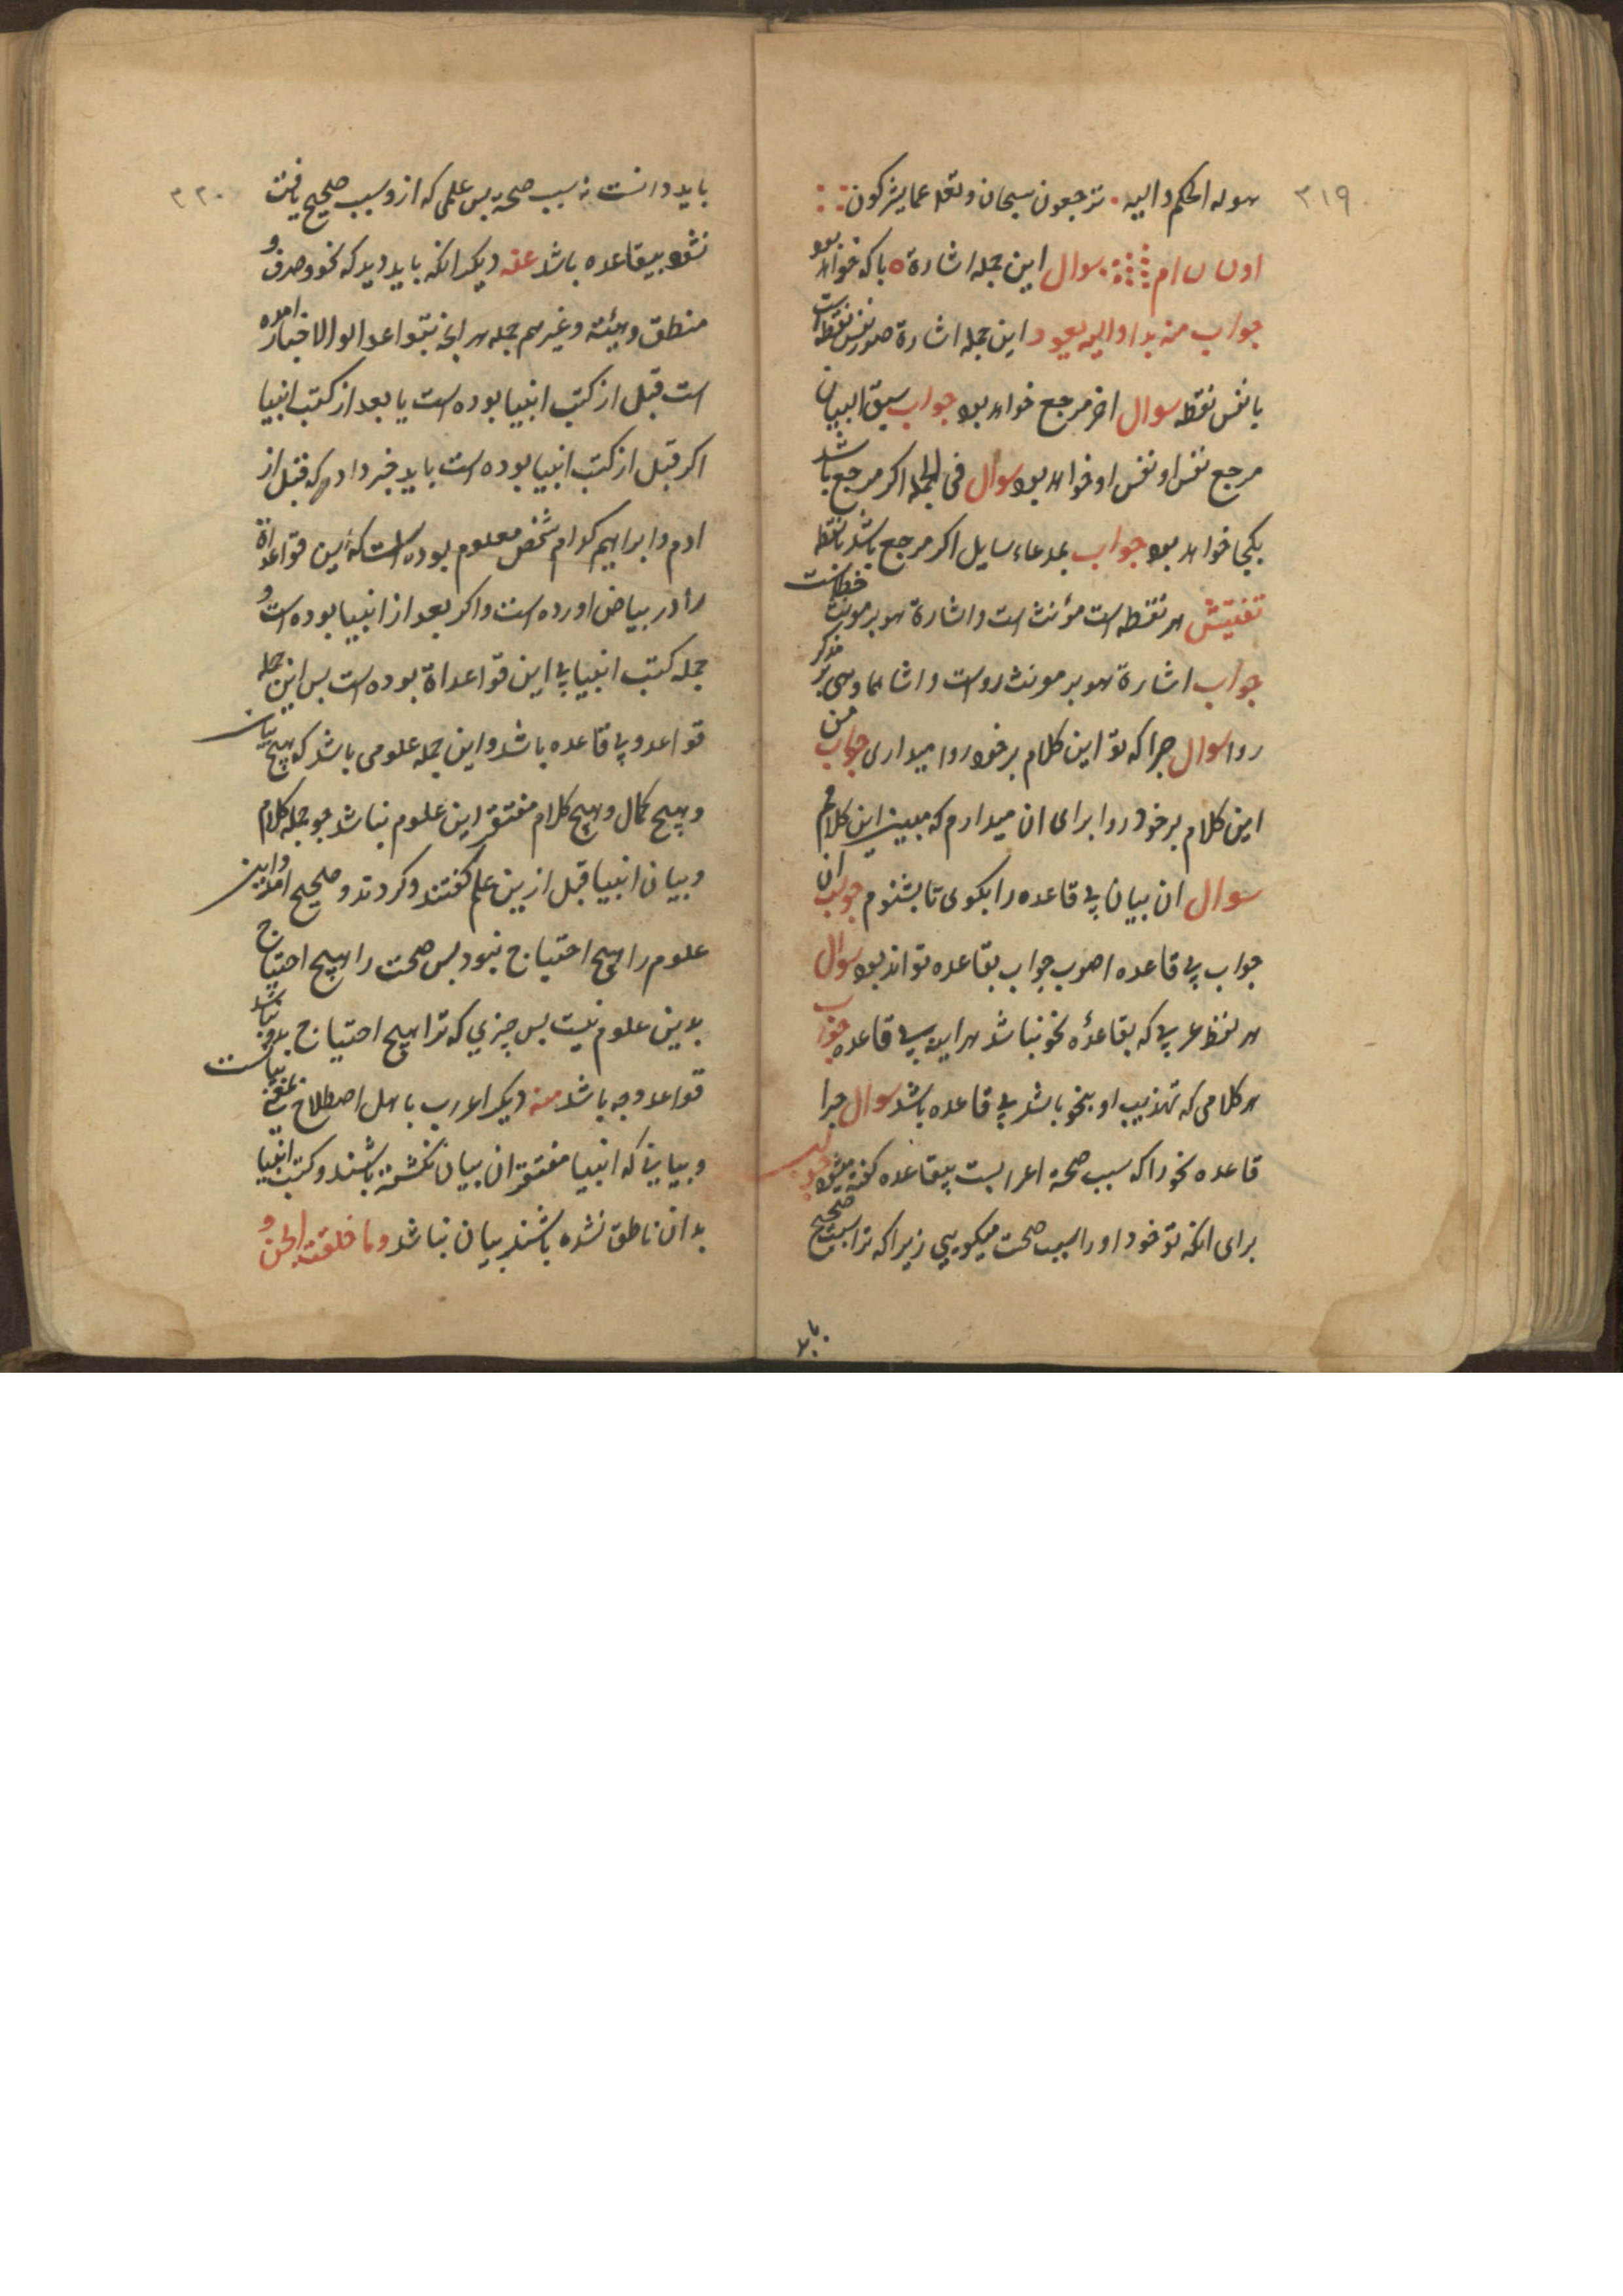 ۳۱۹
هو له الحکم و الیه ترجعون سبحان و تعلا عما یشرکون
سوال این جمله اشارة با که خواهد بود
جواب منه بدا و الیه یعود این جمله اشارة نفس نقطه است
یا نفس نقطه سوال اخر مرجع خواهد بود جواب سبق البیان
مرجع نفس او نفس او خواهد بود سوال فی الجمله اکر مرجع باشد
بکجا خواهد بود جواب بمدعاء سایل اکر مرجع باشد با نقطه
تفتیش هر نقطه است مؤنث است و اشارة هو بر مونث خطاست
جواب اشارة هو بر مونث رواست و اشا هما و هی بر مذکر
روا سوال چرا که تو این کلام بر خود روا میداری جواب من
این کلام بر خود روا برای ان میدارم که مبین این کلام
سوال ان بیان بی قاعده را بکوی تا بشنوم جواب ان
جواب بی قاعده اصوب جواب بقاعده تواند بود سوال
هر لفظ عربی که بقاعدۀ نحو نباشد هراینه بی قاعده جواب
هر کلامی که تهذیب او بنحو باشد بی قاعده باشد سوال چرا
قاعده نحو را که سبب صحة اعرابست بیقاعده کفته میشود جواب
برای انکه تو خود او را سبب صحت میکویی زیرا که ترا سبب صحیح
باید
۳۲۰
باید دانست نه سبب صحة بس علمی که ازو سبب صحیح یافت
نشود بیقاعده باشد عنه دیکر انکه باید دید که نحو و صرف و
منطق و هیئة و غیرهم جمله هر انچه بقواعد اولو الاخبار امده
است قبل از کتب انبیا بوده است یا بعد از کتب انبیا
اکر قبل از کتب انبیا بوده است باید خبر داد که قبل از
ادم و ابراهیم کدام شخص معلوم بوده است که این قواعداة
را در بیاض اورده است و اکر بعد از انبیا بوده است و
جمله کتب انبیا بی این قواعداة بوده است بس این جمله
قواعد و بی قاعده باشد و این جمله علومی باشد که هیچ بیان
و هیچ کمال و هیچ کلام مفتقر این علوم نباشد چو جمله کلام
و بیان انبیا قبل ازین علم کفتند و کردند و صحیح امد و این
علوم را هیچ احتیاج نبود بس صحت را هیچ احتیاج
بدین علوم نیست بس چیزی که ترا هیچ احتیاج بدو نباشد
قواعد و چه باشد منه دیکر اعرب باهل اصطلاح بیانست
و بیانی که انبیا مفتقر ان بیان نکشته باشند و کتب انبیا
بدان ناطق نشده باشند بیان نباشد و ما خلقت الجن و